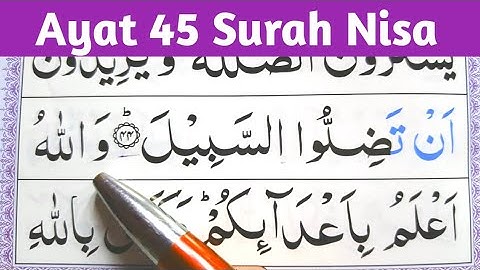 Ayat 45 Surah Nisa
يَشْتَرُوْنَ الضَّلٰلَةَ وَيُرِيْدُوْنَ
اَنْ تَضِلُّوا السَّبِيْلَ ؕ ﴿۴۴﴾ وَاللّٰهُ
اَعْلَمُ بِاَعْدَآئِكُمْ ؕ بِاللّٰهِ